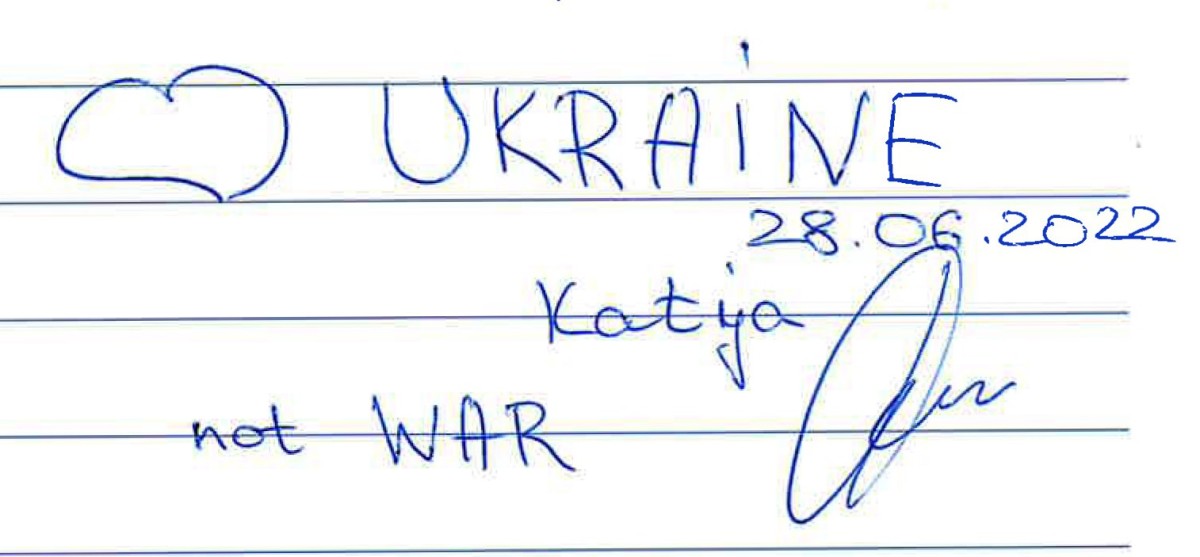 UKRAINE
28.06.2022
Katja
not WAR